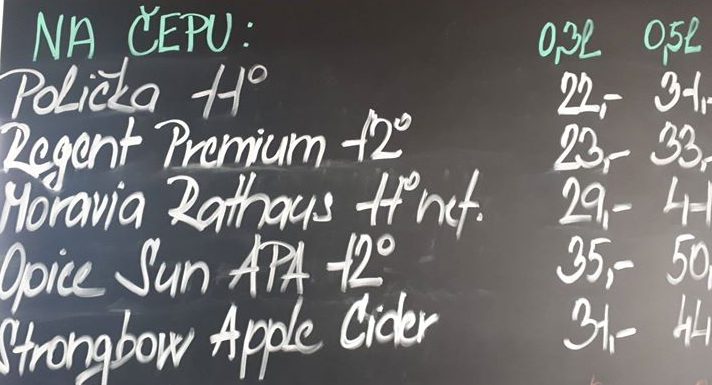 NA ČEPU: 0,3l 0,5l
Polička 11° 22,- 31,-
Regent Premium 12° 23,- 33,
Moravia Rathaus 11° nef. 29,- 41
Opice Sun APA 12° 35,- 50,
Strongbow Apple Cider 31,- 44